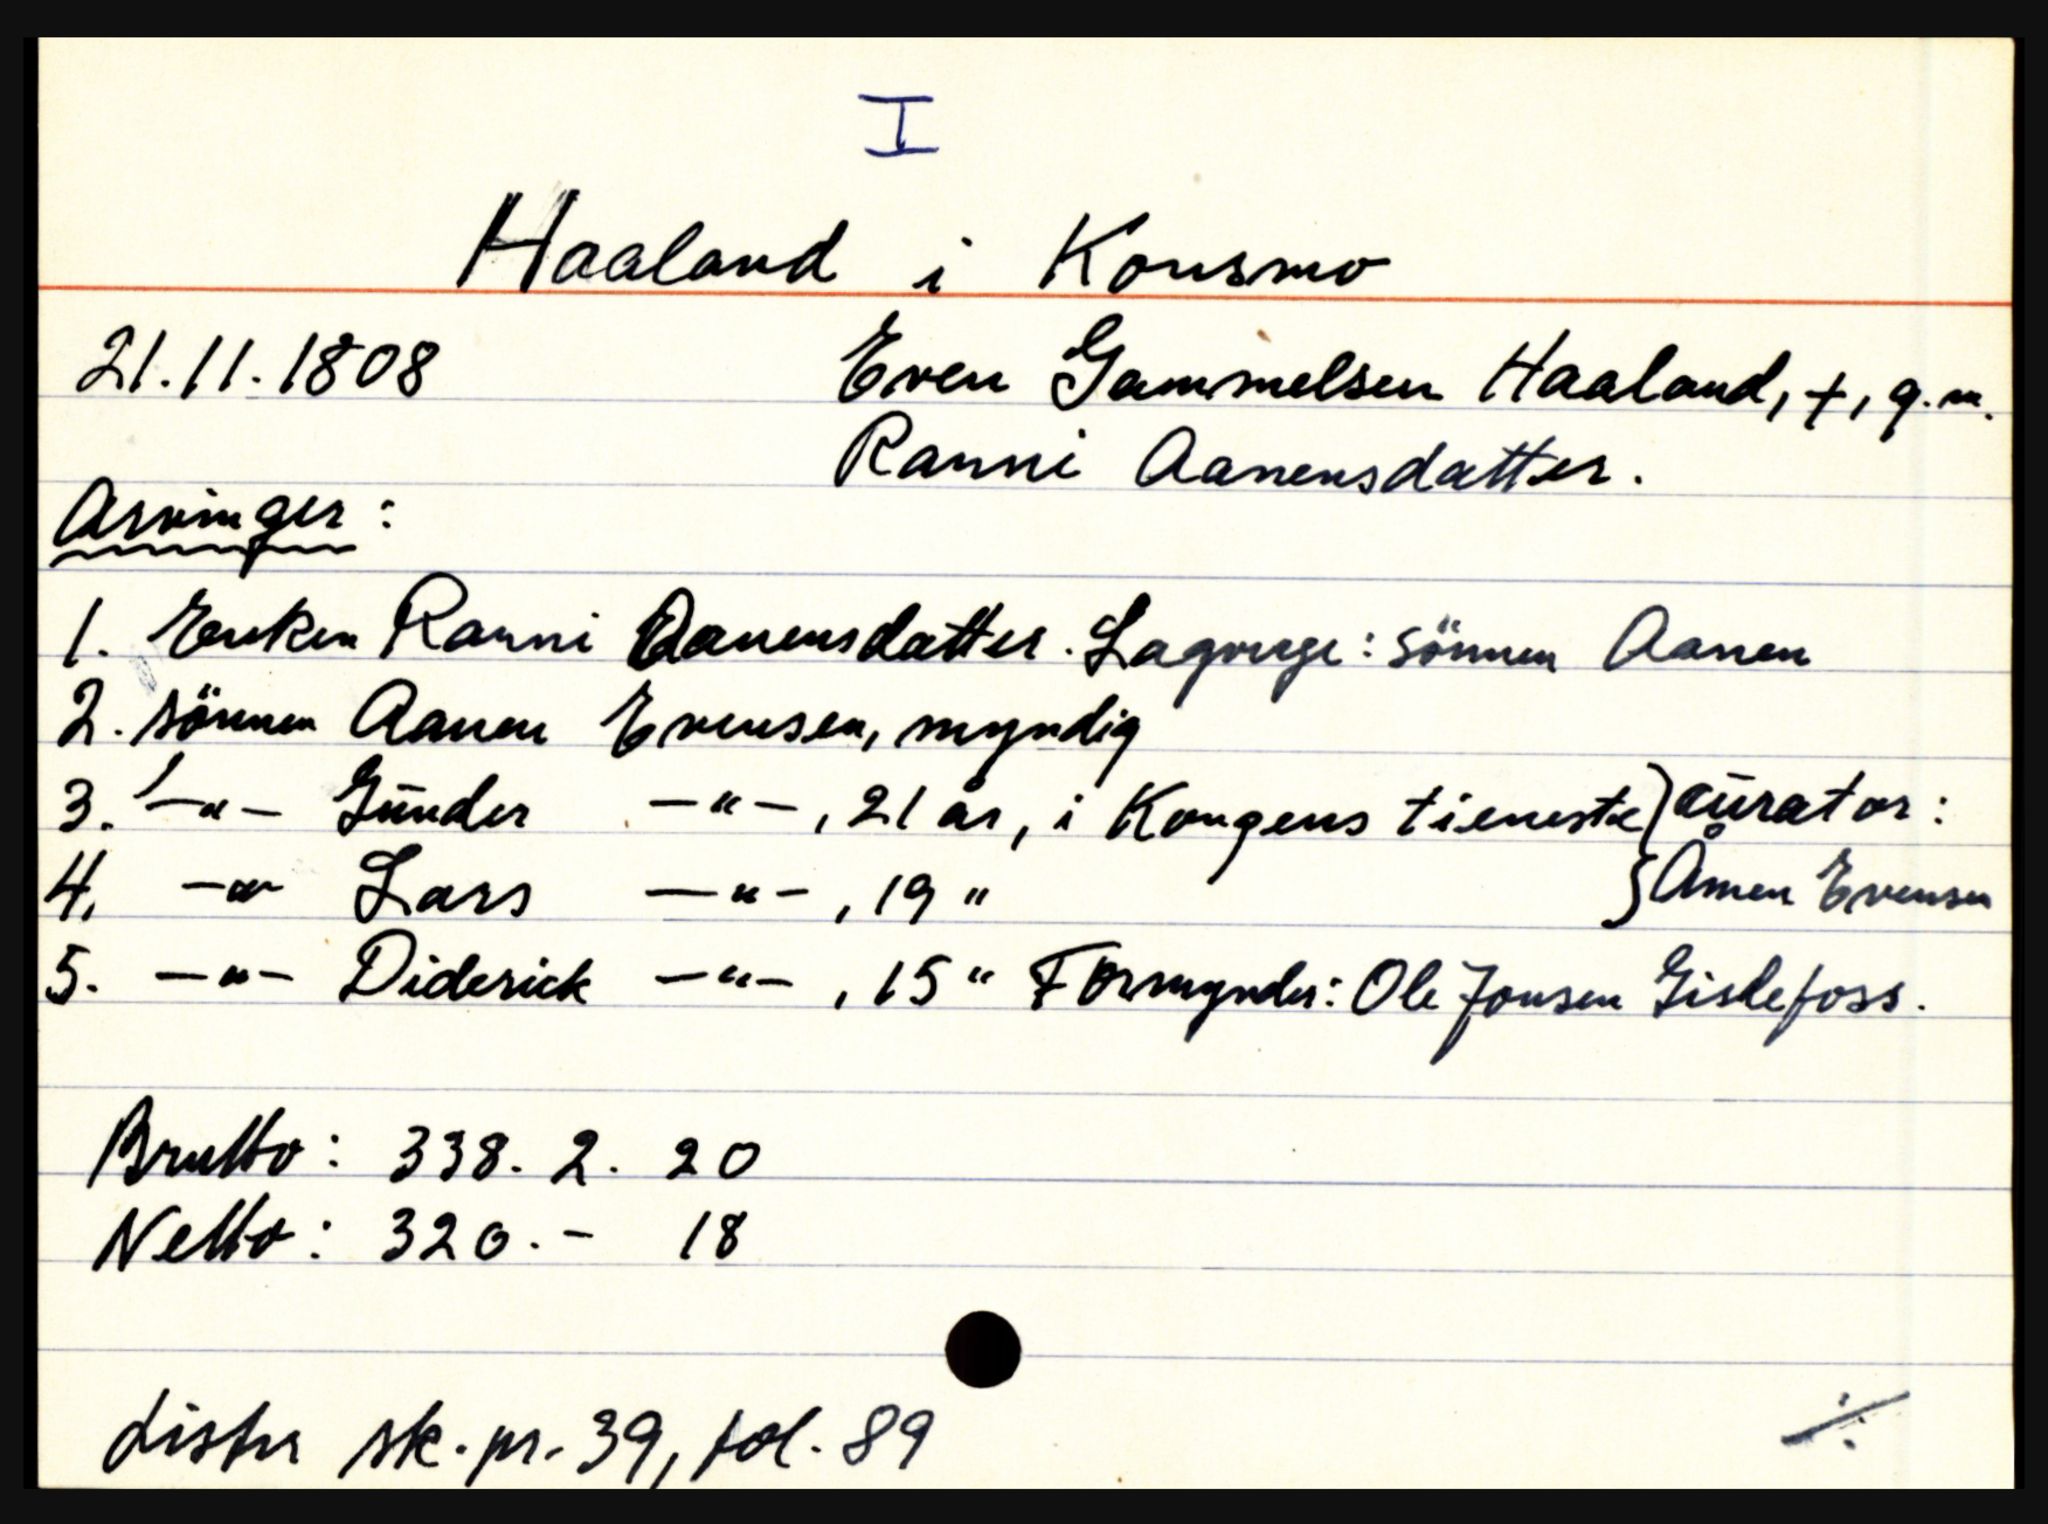 I
Haaland i Konsmo
21.11.1808 Even Gammelsen Haaland, +, g.m.
Ranni Aanensdatter.
Arvinger:
1. Enken Ranni Aanensdatter. Lagverge: sönnen Aanen
2. sönnen Aanen Evensen, myndig
3. -"- Gunder -"-, 21 år, i Kongens tieneste } curator:
4. -"- Lars -"-, 19 " } Ånen Evensen
5. -"- Diderick -"-, 15 " Formynder: Ole Jonsen Gislefoss.
Brutto: 338. 2. 20
Netto: 320. - 18
Lister sk. pr. 39, fol. 89 ÷